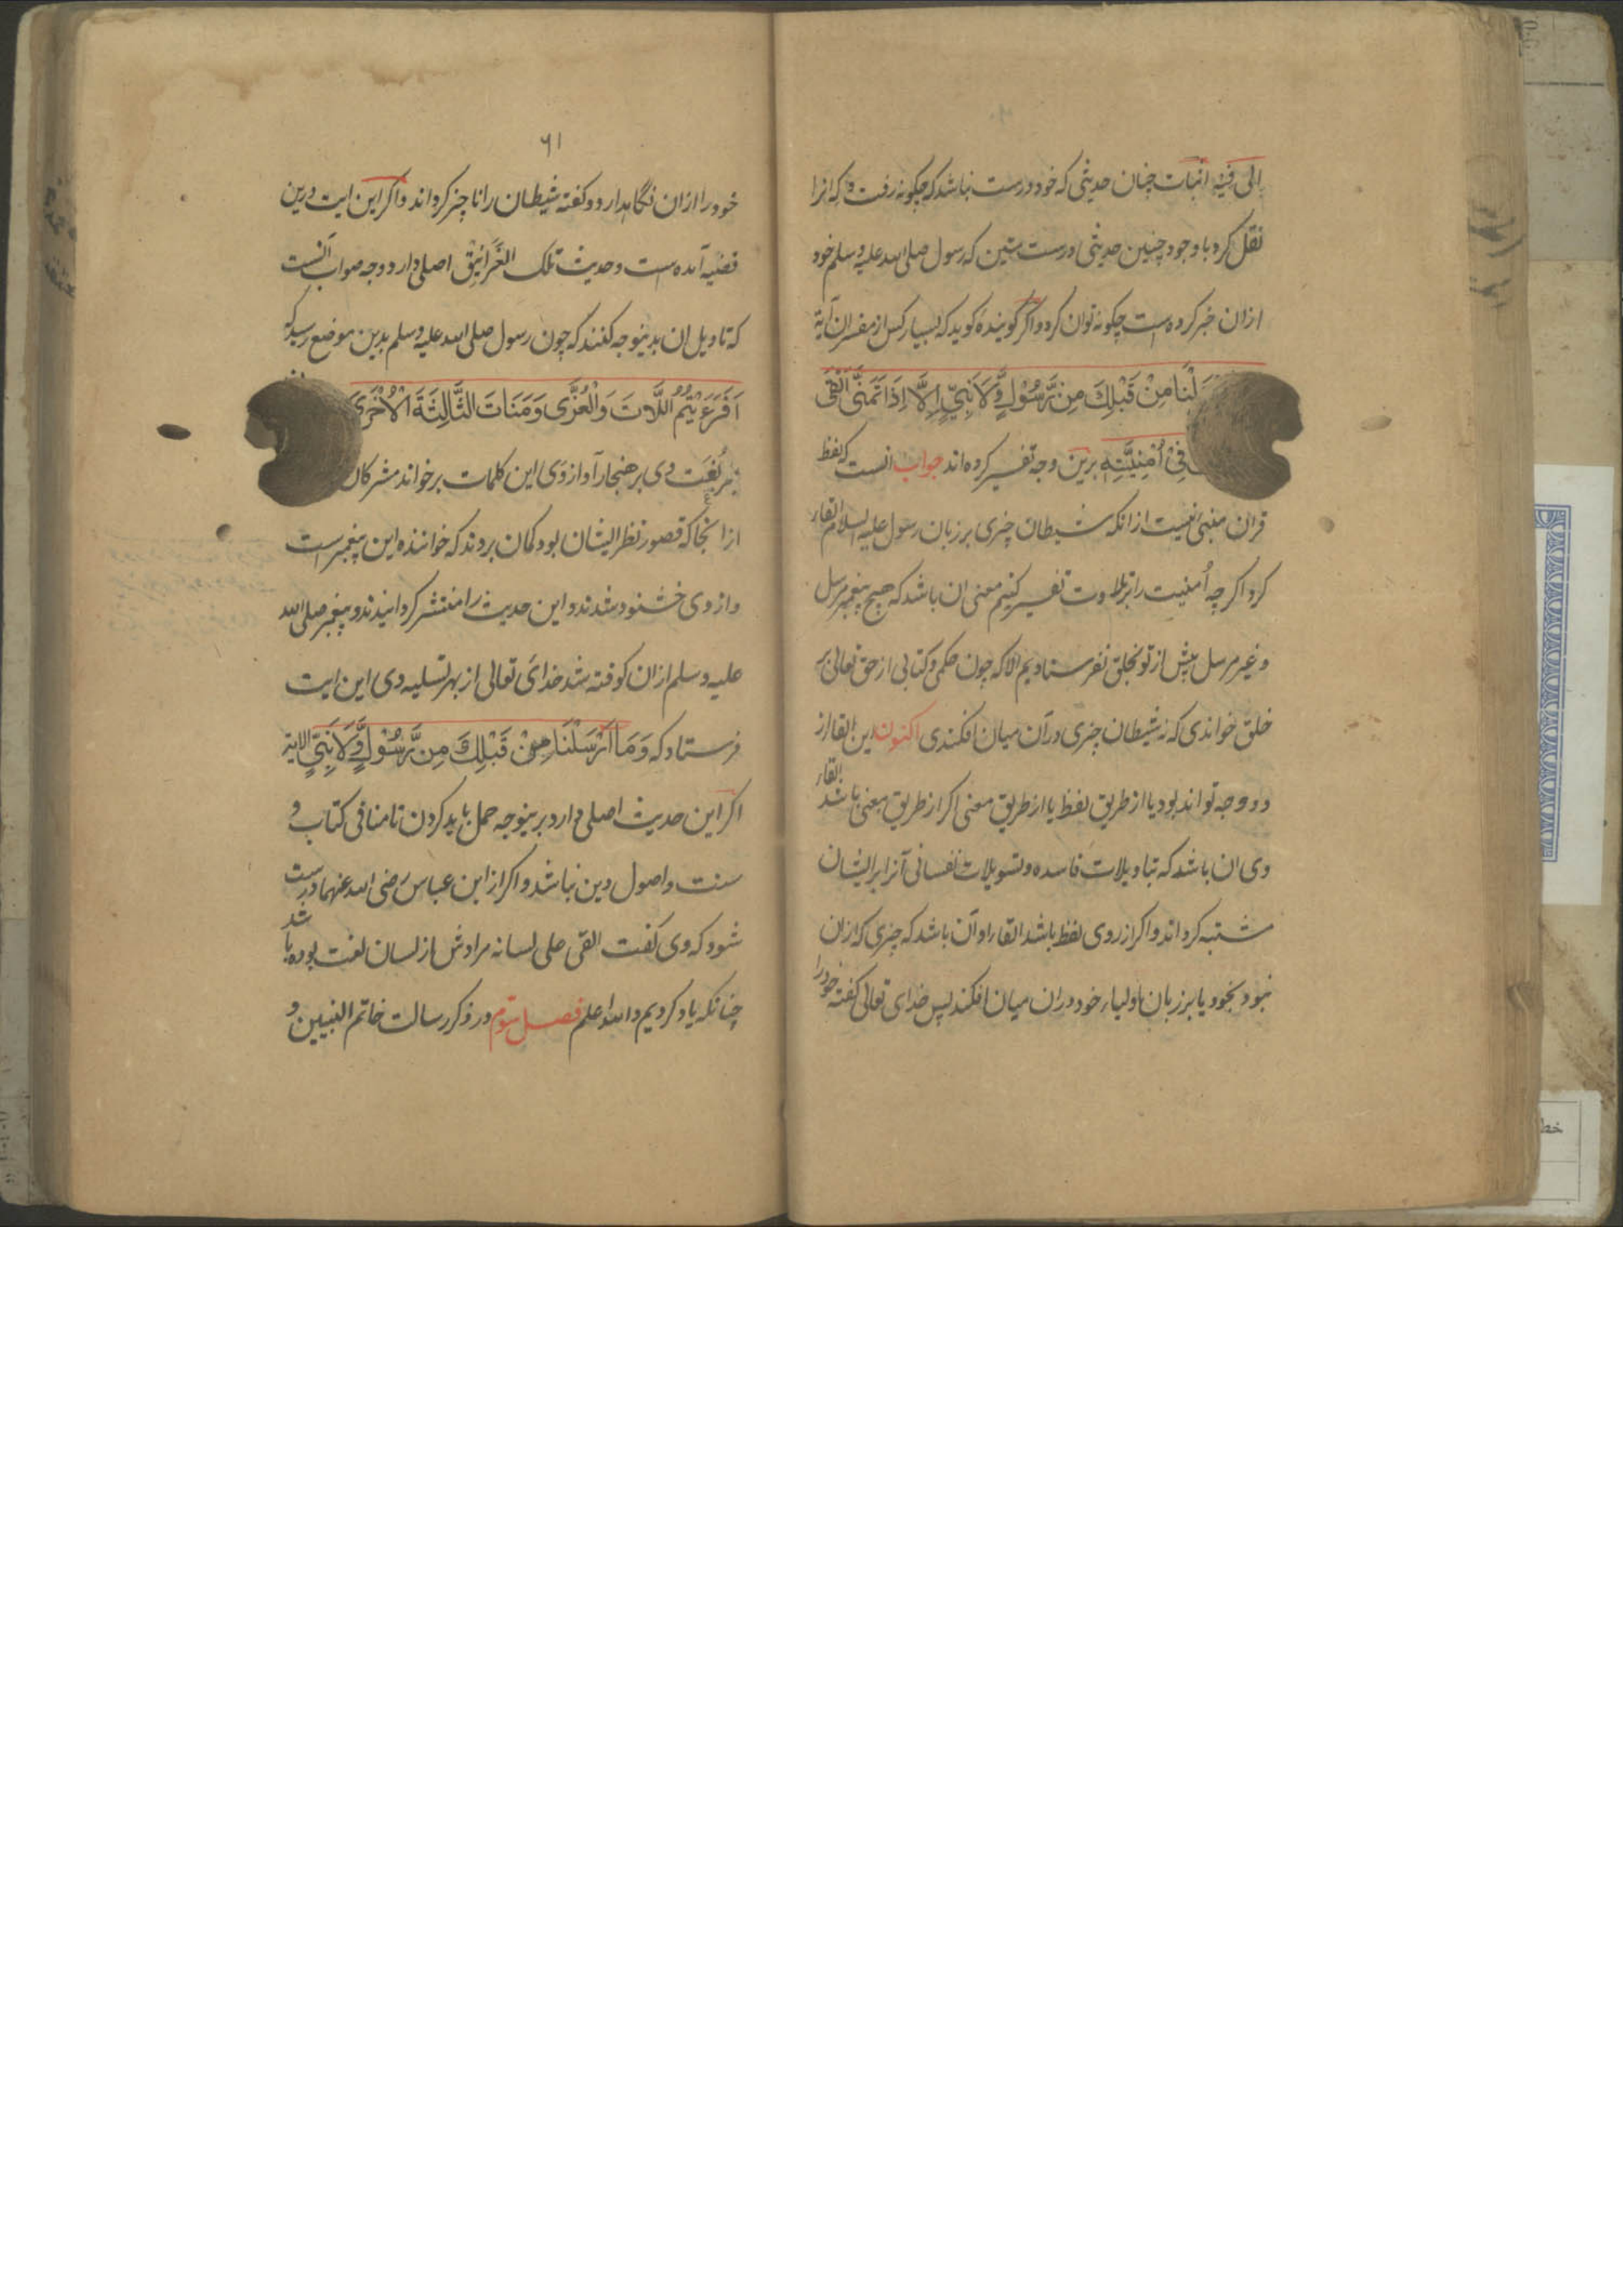 الی فیه اثبات چنان حدیثی که خود درست نباشد که چکونه رفت و که انرا
نقل کرد با وجود چنین حدیثی درست متین که رسول صلی الله علیه وسلم خود
ازان خبر کرده است چکونه توان کرد و اکر کوینده کوید که بسیار کس از مفسران آیة
لْنَا مِنْ قَبْلِكَ مِن رَّسُوْلٍ وَّلَا نَبِيٍّ اِلَّا اِذَا تَمَنَّى اَلْقَى
فِیْ اُمْنِيَّتِهِ برین وجه تفسیر کرده‌اند جواب انست که لفظ
قران منبی نیست ازانکه شیطان چیزی بر زبان رسول علیه السلام القاء
کرد اکر چه اُمنیت را بتلاوت تفسیر کنیم معنی ان باشد که هیچ پیغمبر مرسل
و غیر مرسل پیش از تو بخلق نفرستادیم الا که چون حکمی و کتابی از حق تعالی بر
خلق خواندی که نه شیطان چیزی در آن میان افکندی اکنون این القا از
دو وجه تواند بود یا از طریق لفظ یا از طریق معنی اکر از طریق معنی باشد القاء
وی ان باشد که بتاویلات فاسده و تسویلات نفسانی آنرا بر ایشان
مشتبه کرداند و اکر از روی لفظ باشد القاء او آن باشد که چیزی که ازان
نبود بخود یا بر زبان اولیاء خود دران میان افکند پس خدای تعالی کفته خود را
٦١
خود را ازان نکاهدارد و کفته شیطان را ناچیز کرداند و اکر این ایت درین
قضیه آمده است و حدیث تلک الغَرَانِیْق اصلی دارد وجه صواب آنست
که تاویل ان بدینوجه کنند که چون رسول صلی الله علیه وسلم بدین موضع رسید که
اَفَرَءَيْتُمُ اللَّاتَ وَالْعُزَّى وَمَنَاتَ الثَّالِثَةَ الْاُخْرَى
بلُغَت وی بر هنجار آواز وی این کلمات بر خواند مشرکان
از انجا که قصور نظر ایشان بود کمان بردند که خواننده این پیغمبر است
و از وی خشنود شدند و این حدیث را منتشر کردانیدند و پیغمبر صلی الله
علیه وسلم ازان کوفته شد خدای تعالی از بهر تسلیه وی این ایت
فرستاد که وَمَا اَرْسَلْنَا مِنْ قَبْلِكَ مِن رَّسُوْلٍ وَّلَا نَبِيٍّ الایة
اکر این حدیث اصلی دارد برینوجه حمل باید کردن تا منافی کتاب و
سنت و اصول دین نباشد و اکر از ابن عباس رضی الله عنهما درست
شود که وی کفت القی علی لسانه مرادش از لسان لغت بوده باشد
چنانکه یاد کردیم والله اعلم فصل سوم در ذکر رسالت خاتم النبیین و
خط